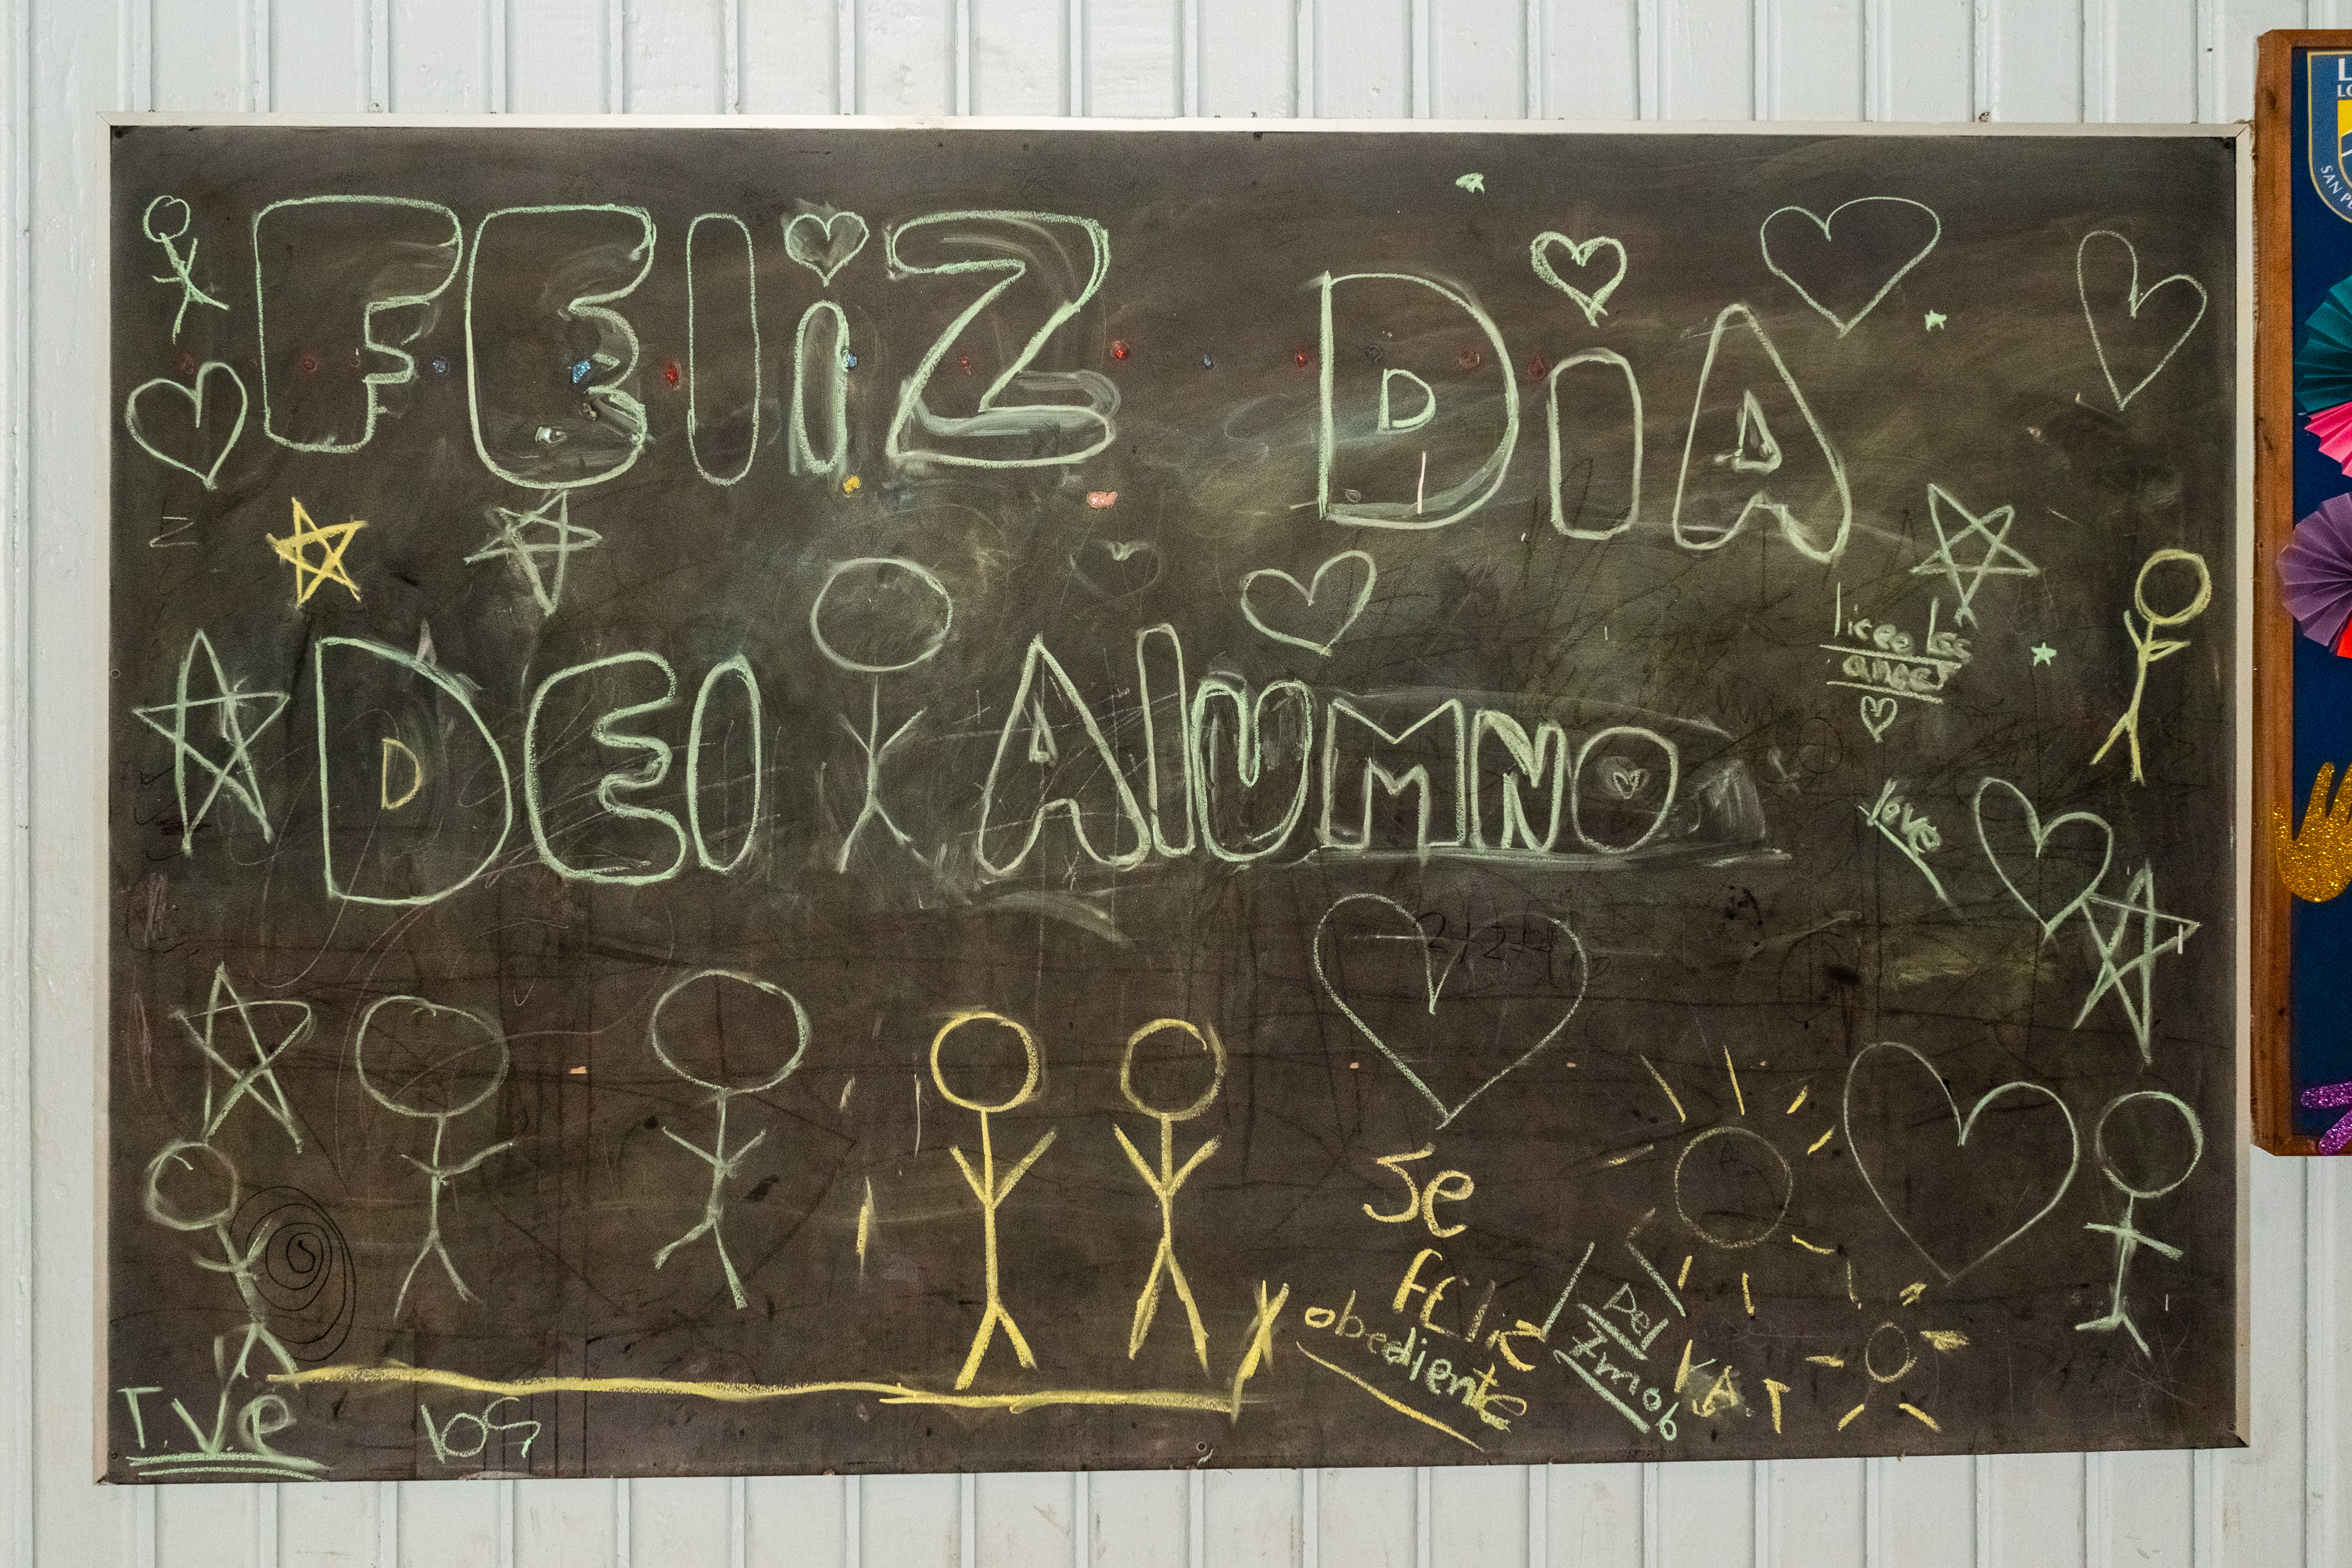 FEliZ DiA
DEl AlUMNO
liceo los
love
Se
feliz
obediente
Del
7mob
T.V.e
los
SAN